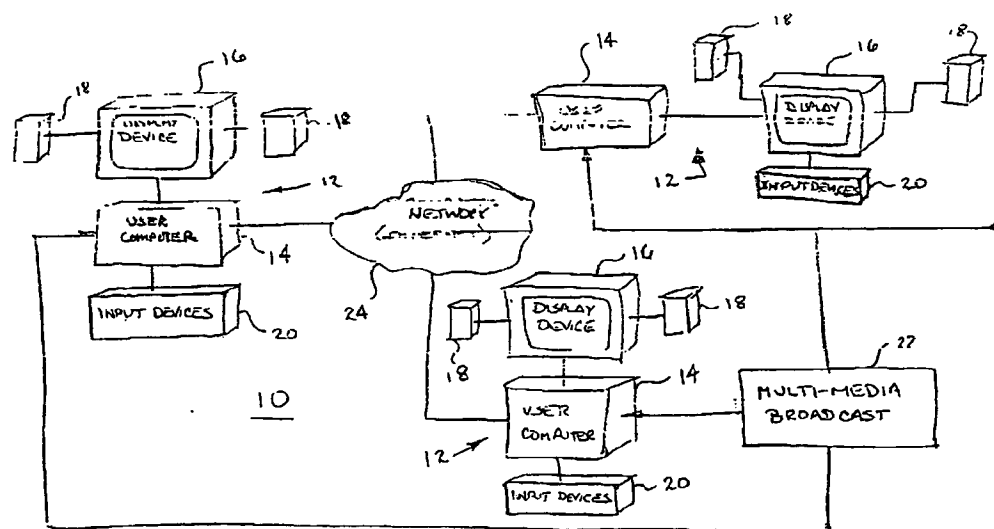 18
16
18
DISPLAY
DEVICE
12
USER
COMPUTER
14
INPUT DEVICES
20
10
NETWORK
24
14
18
16
18
COMPUTER
DISPLAY
DEVICE
12
INPUT DEVICES
20
16
18
DISPLAY
DEVICE
18
14
USER
COMPUTER
12
INPUT DEVICES
20
22
MULTI-MEDIA
BROADCAST